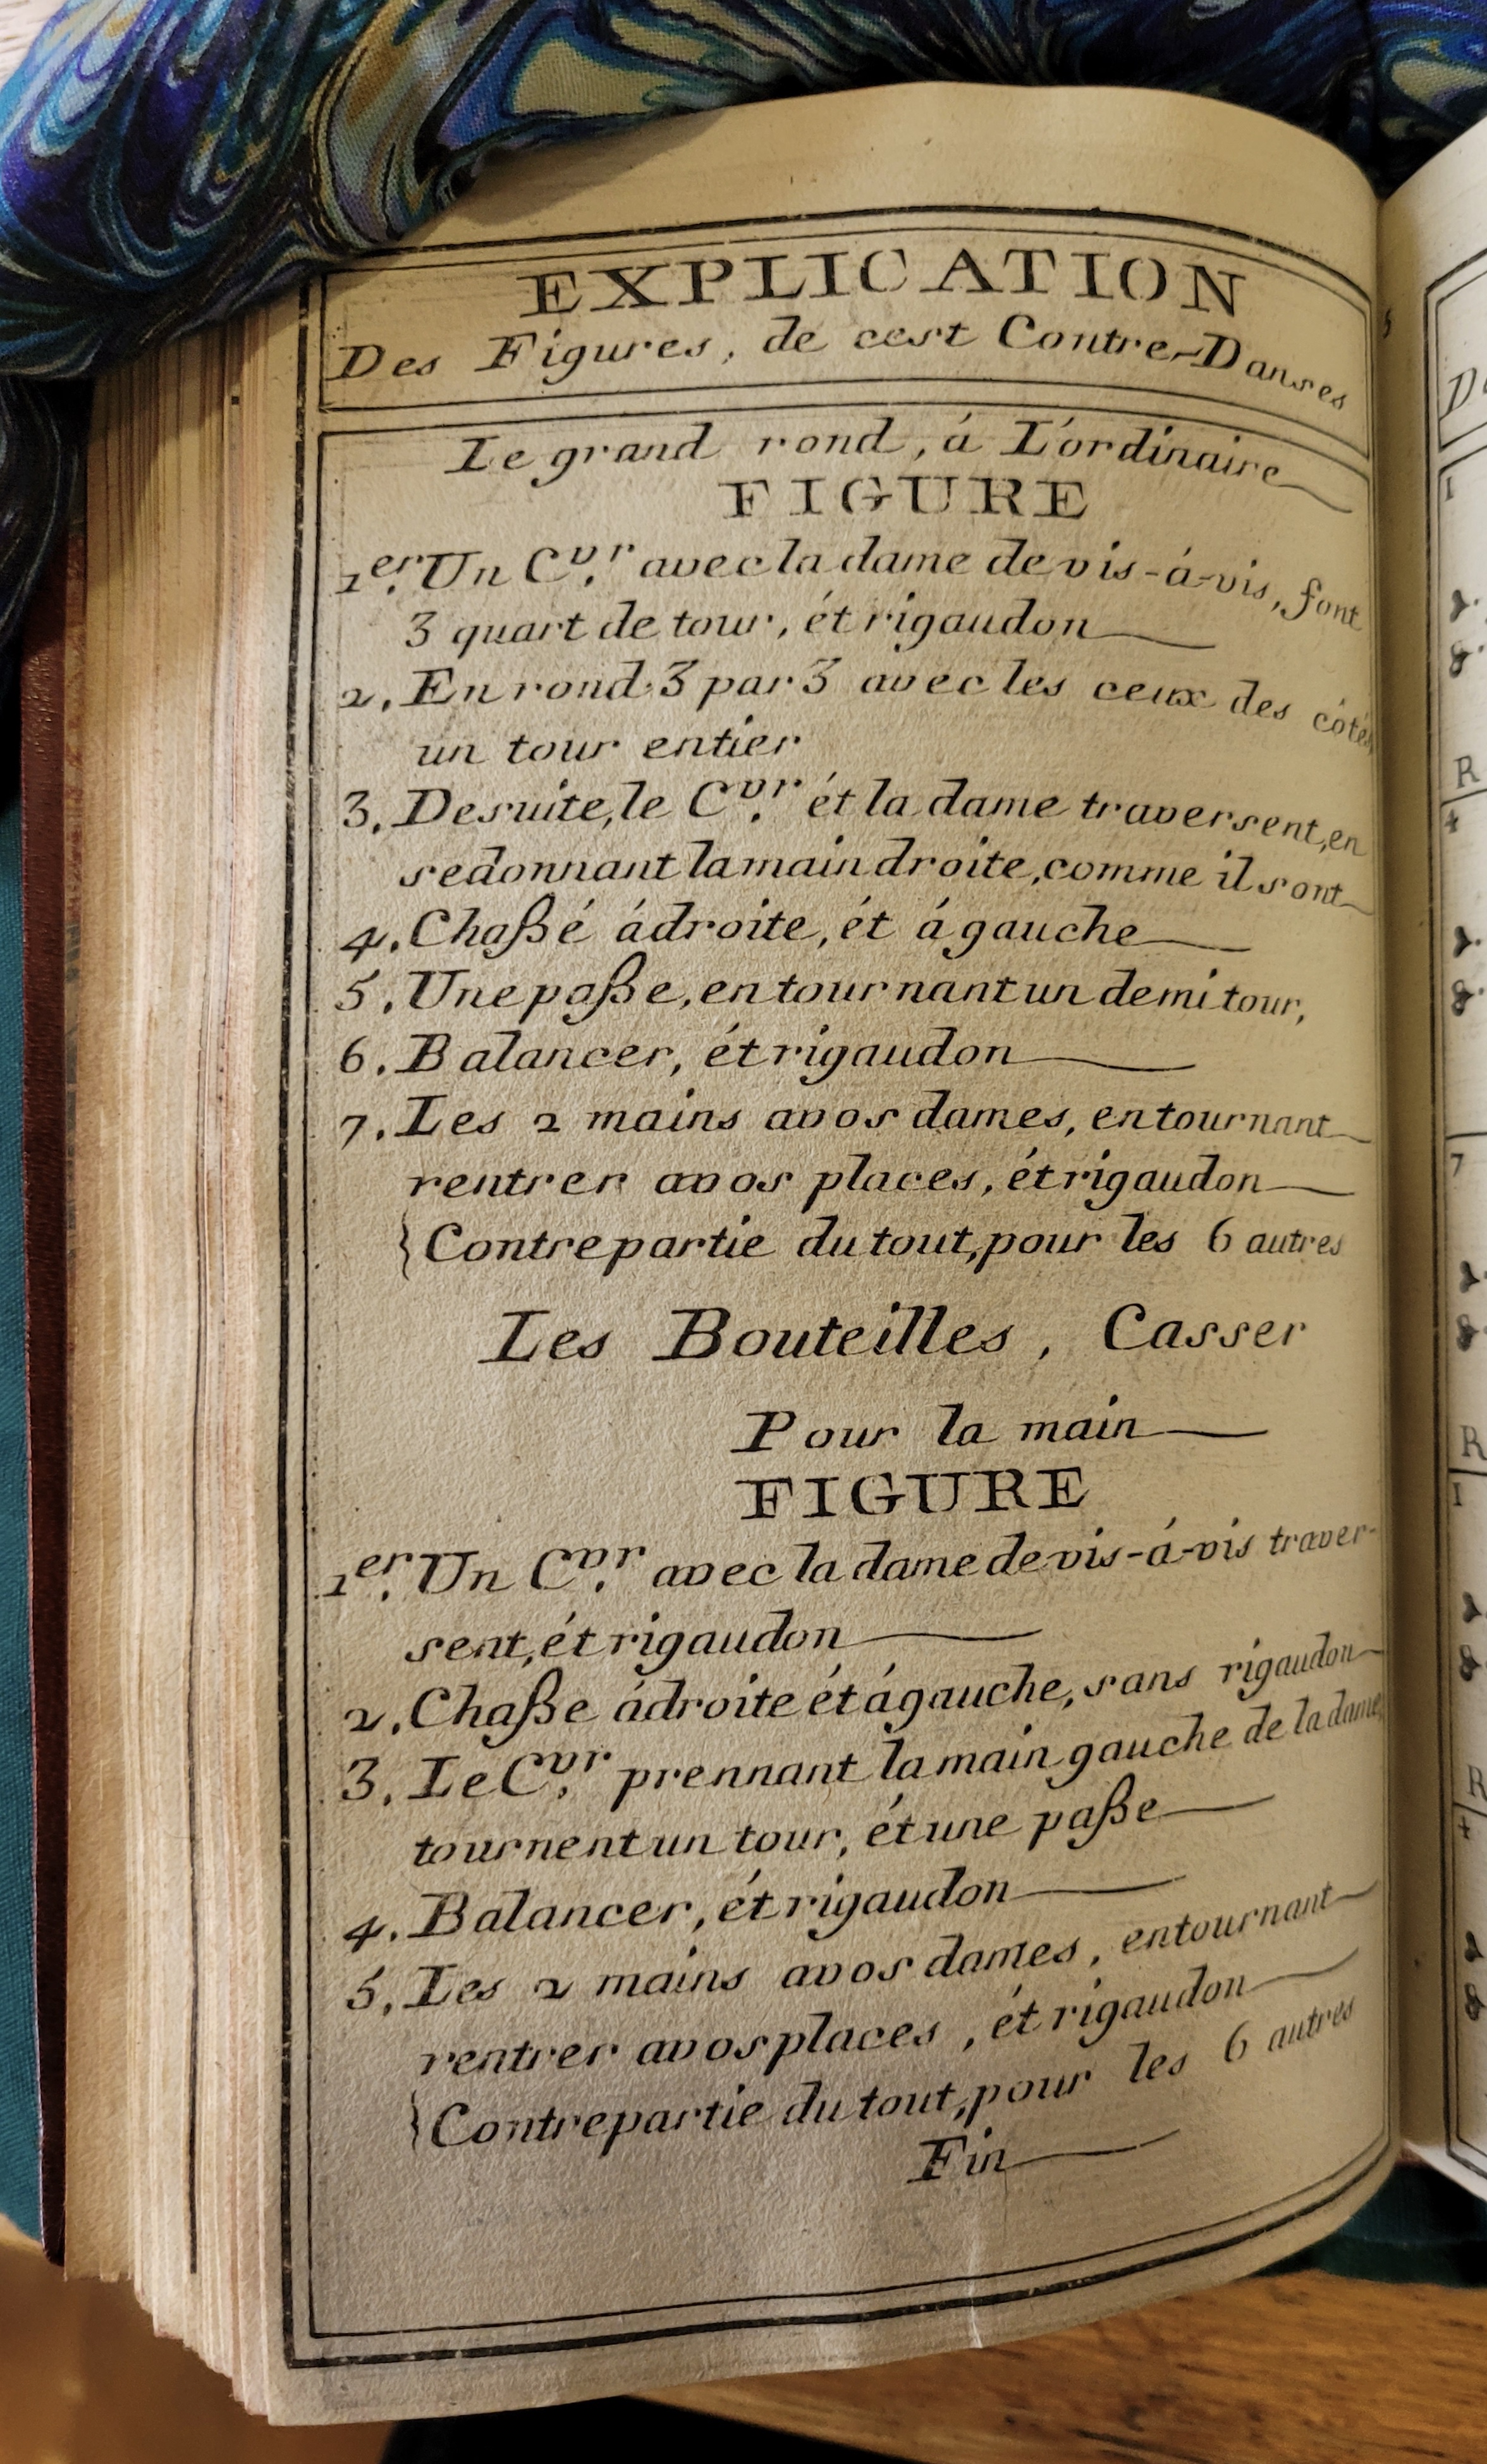 EXPLICATION
Des Figures, de cest Contre-Danses
Le grand rond, á L'ordinaire
FIGURE
1er. Un Cvr. avec la dame de vis-á-vis, font
3 quart de tour, ét rigaudon
2. En rond 3 par 3 avec les ceux des côtés
un tour entier
3. De suite, le Cvr. ét la dame traversent, en
se donnant la main droite, comme il sont
4. Chaßé á droite, ét á gauche
5. Une paße, en tournant un demi tour,
6. Balancer, ét rigaudon
7. Les 2 mains a vos dames, en tournant
rentrer a vos places, ét rigaudon
{Contrepartie du tout, pour les 6 autres
Les Bouteilles, Casser
Pour la main
FIGURE
1er. Un Cvr. avec la dame de vis-á-vis traver-
sent, ét rigaudon
2. Chaße á droite ét á gauche, sans rigaudon
3. Le Cvr. prennant la main gauche de la dame,
tournent un tour, ét une paße
4. Balancer, ét rigaudon
5. Les 2 mains a vos dames, en tournant
rentrer a vos places, ét rigaudon
{Contrepartie du tout, pour les 6 autres
Fin
R
4
7
R
1
R
4